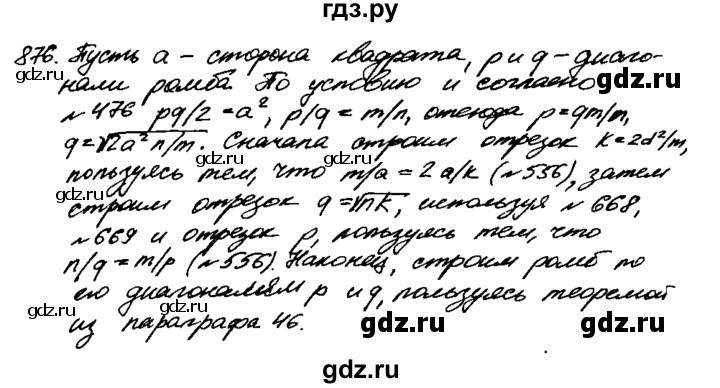 гдз.ру
876. Пусть a - сторона квадрата, p и q - диаго-
нали ромба. По условию и согласно
№476 pq/2 = a², p/q = m/n, откуда p = qm/n,
q = √2a² n/m. Сначала строим отрезок K = 2d²/m,
пользуясь тем, что m/a = 2a/k (№536), затем
строим отрезок q = √nK, используя №668,
№669 и отрезок p, пользуясь тем, что
n/q = m/p (№556). Наконец, строим ромб по
его диагоналям p и q, пользуясь теоремой
из параграфа 46.
gdz.ru
gdz.ru
gdz.ru
gdz.ru
gdz.ru
gdz.ru
gdz.ru
gdz.ru
gdz.ru
gdz.ru
gdz.ru
gdz.ru
gdz.ru